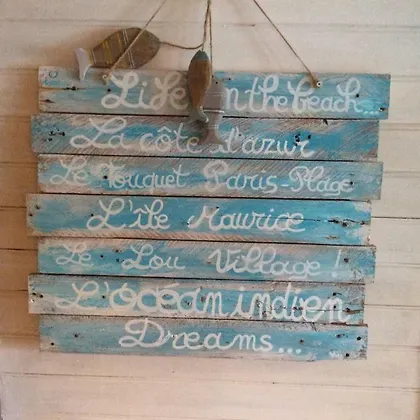 Life on the beach...
La côte d'azur
Le Touquet Paris-Plage
L'île Maurice
Le Lou Village!
L'océan indien
Dreams...